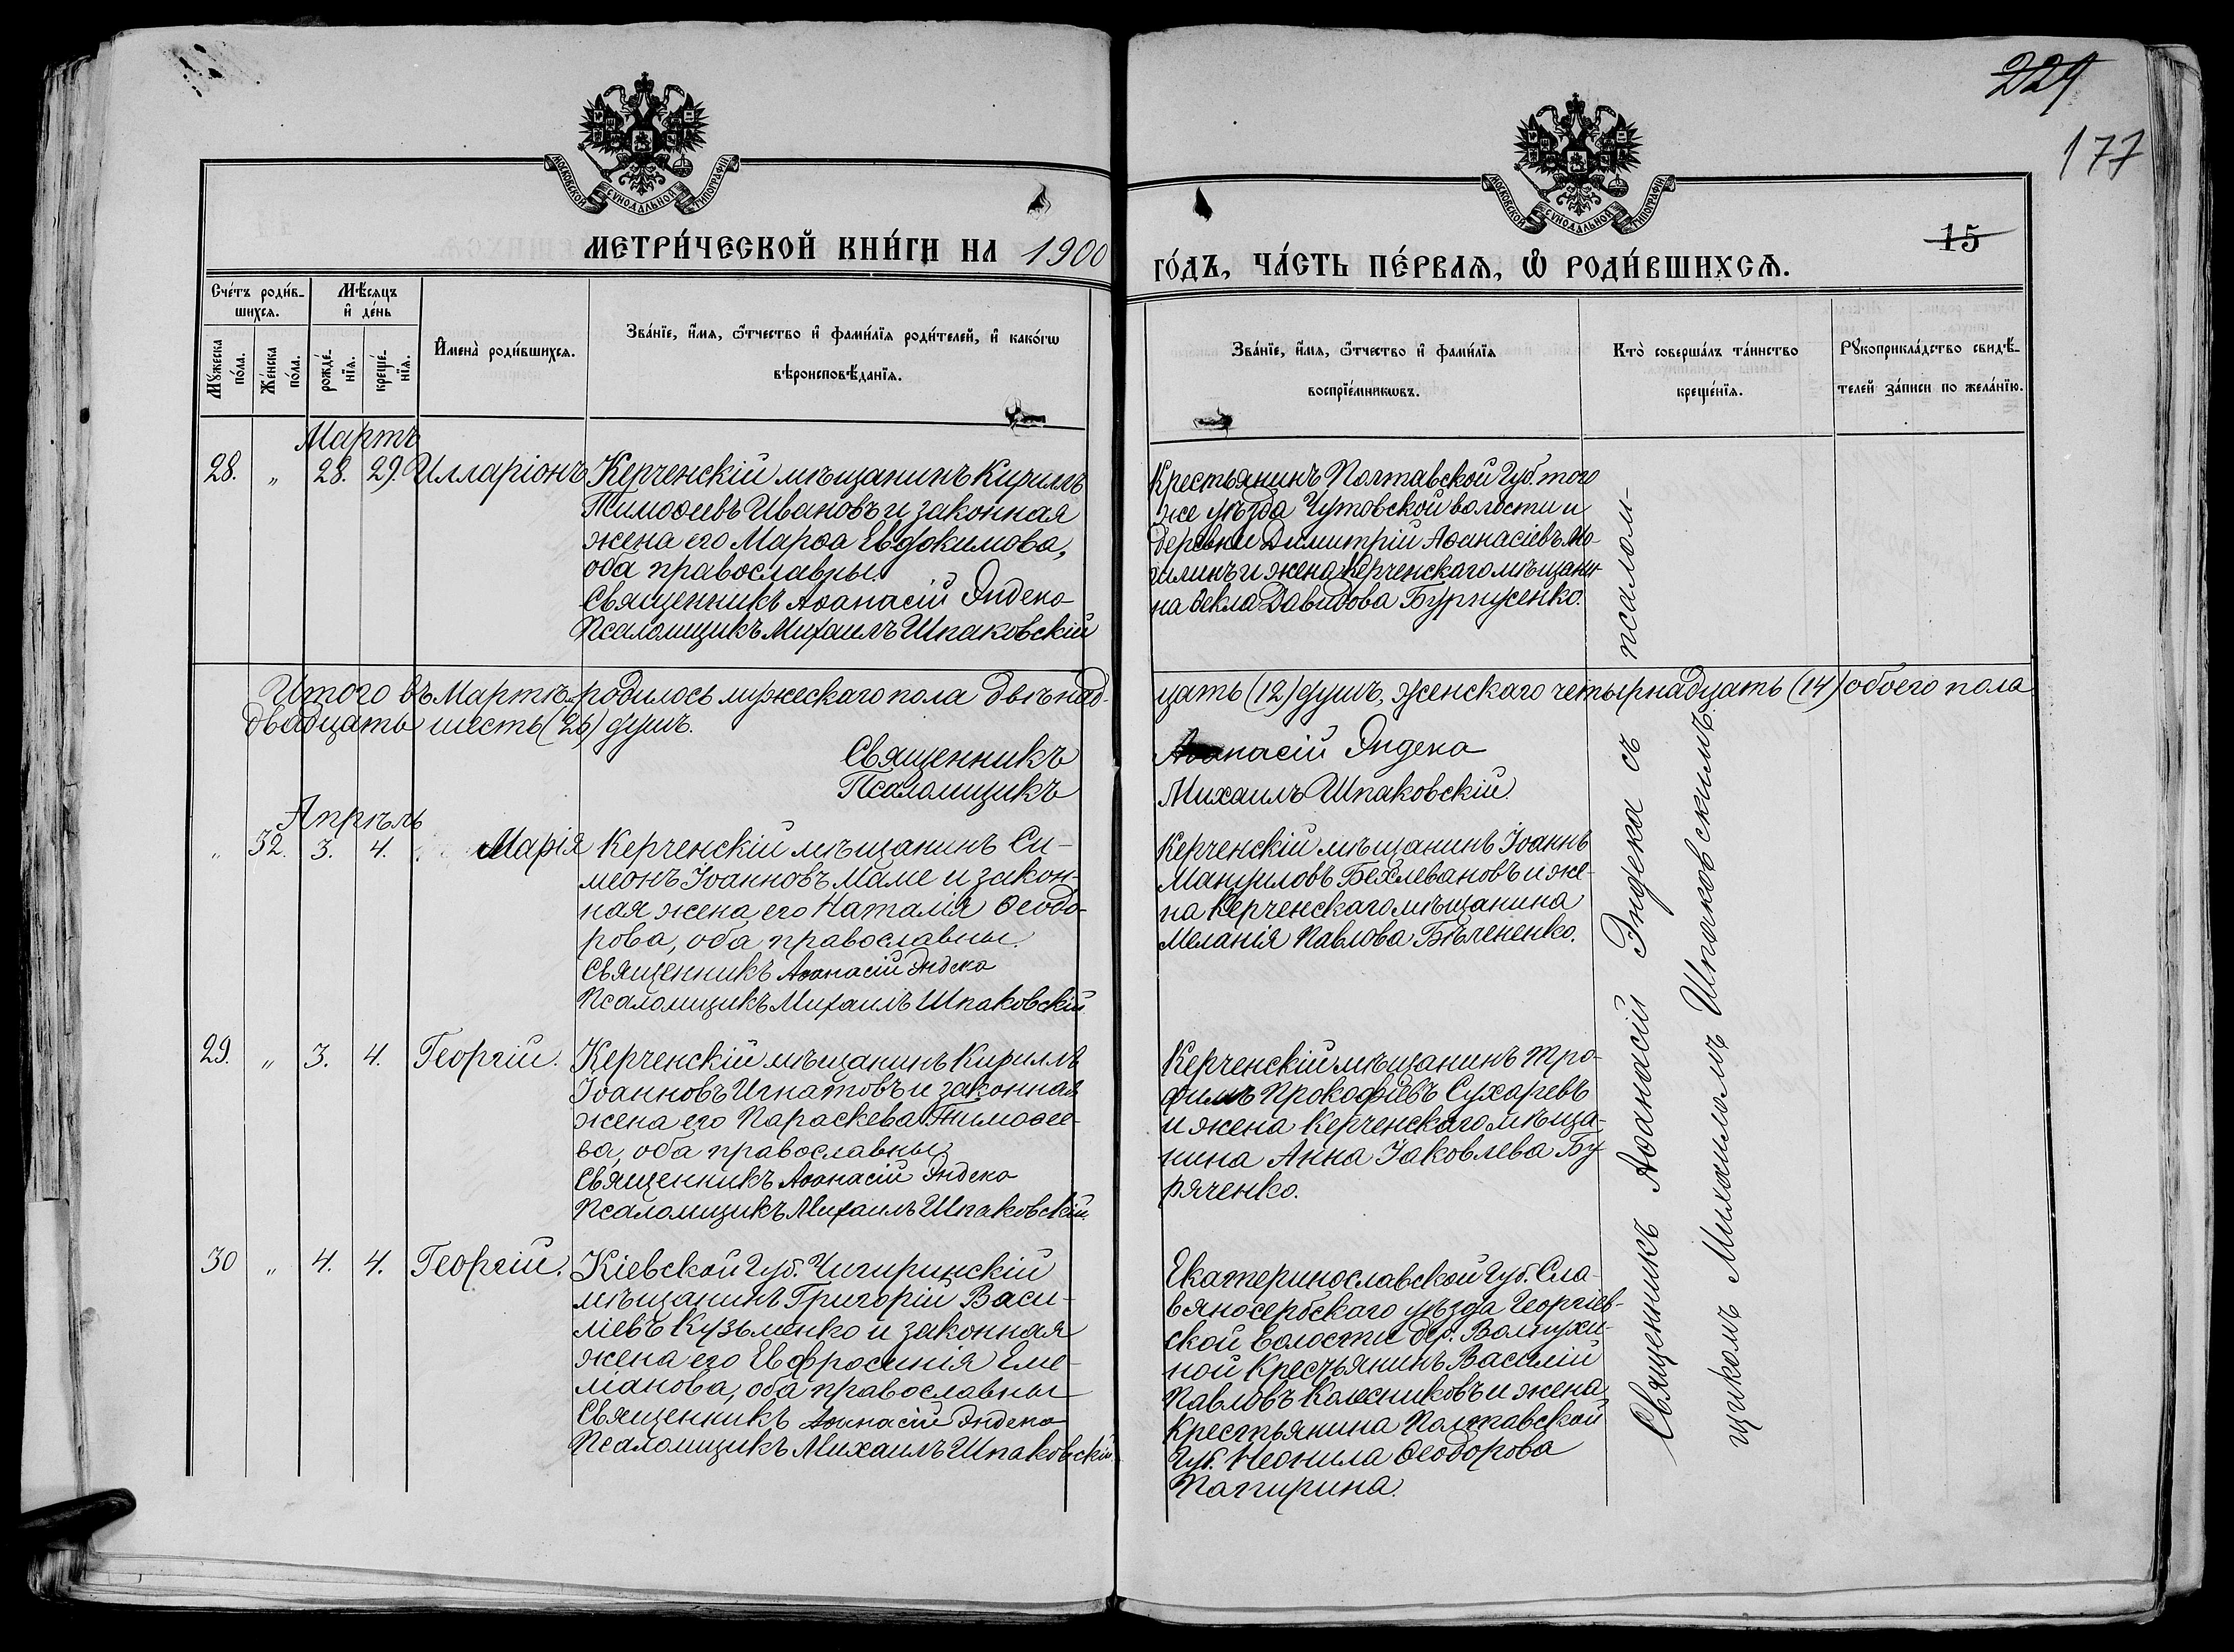 229
177
МОСКОВСКОЙ СѴНОДАЛЬНОЙ ТИПОГРАФІИ
МОСКОВСКОЙ СѴНОДАЛЬНОЙ ТИПОГРАФІИ
15
МЕТРИ́ЧЕСКОЙ КНИ́ГИ НА 1900
ГО́ДЪ, ЧА́СТЬ ПЕ́РВАѦ, Ѽ РОДИ́ВШИХСѦ.
Сче́тъ роди́в-
шихсѧ.
Мѣ́сѧцъ
и҆ де́нь
Мꙋ́жеска по́ла.
Же́нска по́ла.
рожде́-
нїѧ.
креще́-
нїѧ.
И҆мена̀ роди́вшихсѧ.
Зва́нїе, и҆́мѧ, ѻ҆́тчество и҆ фами́лїѧ роди́телей, и҆ како́гѡ
вѣроисповѣ́данїѧ.
Зва́нїе, и҆́мѧ, ѻ҆́тчество и҆ фами́лїѧ
воспрїе́мникѡвъ.
Кто̀ соверша́лъ та́инство
креще́нїѧ.
Рꙋкоприкла́дство свидѣ́-
телей за́писи по жела́нїю.
Мартъ
28. „ 28. 29. Илларіонъ Керченскій мѣщанинъ Кирилъ
Тимоѳеевъ Ивановъ и законная
жена его Марѳа Евдокимова,
оба православны.
Священникъ Аѳанасій Эндека
Псаломщикъ Михаилъ Шпаковскій
Крестьянинъ Полтавской Губ. того
же уѣзда Чутовской волости и
деревни Димитрій Аѳанасіевъ
и жена Керченскаго мѣщани-
на Ѳекла Давидова
Итого въ Мартѣ родилось мужескаго пола двѣнад-
цать (12) душъ, женскаго четырнадцать (14) обоего пола
двадцать шесть (26) душъ.
Священникъ Аѳанасій Эндека
Псаломщикъ Михаилъ Шпаковскій.
Апрѣль
„ 32. 3. 4. Марія Керченскій мѣщанинъ Си-
меонъ Іоанновъ Маме и закон-
ная жена его Наталія Ѳеодо-
рова, оба православны.
Священникъ Аѳанасій Эндека
Псаломщикъ Михаилъ Шпаковскій
Керченскій мѣщанинъ Іоаннъ
Мануиловъ Бехлевановъ и же-
на Керченскаго мѣщанина
Меланія Павлова Бѣлененко.
29. „ 3. 4. Георгій. Керченскій мѣщанинъ Кириллъ
Іоанновъ Игнатовъ и законная
жена его Параскева Тимоѳее-
ва, оба православны
Священникъ Аѳанасій Эндека
Псаломщикъ Михаилъ Шпаковскій.
Керченскій мѣщанинъ Тро-
фимъ Прокофіевъ Сухаревъ
и жена Керченскаго мѣща-
нина Анна Іаковлева Бу
ряченко.
30 „ 4. 4. Георгій. Кіевской Губ. Чигиринскій
мѣщанинъ Григорій Васи-
ліевъ Кузьменко и законная
жена его Евфросинія Еме-
ліанова, оба православны
Священникъ Аѳанасій Эндека
Псаломщикъ Михаилъ Шпаковскій.
Екатеринославской Губ. Сла-
вяносербскаго уѣзда Георгіев-
ской волости дер.
ной Крестьянинъ Василій
Павловъ Колесниковъ и жена
Крестьянина Полтавской
Губ. Неонила Ѳеодорова
Священникъ Аѳанасій Эндека съ псалом-
щикомъ Михаиломъ Шпаковскимъ.